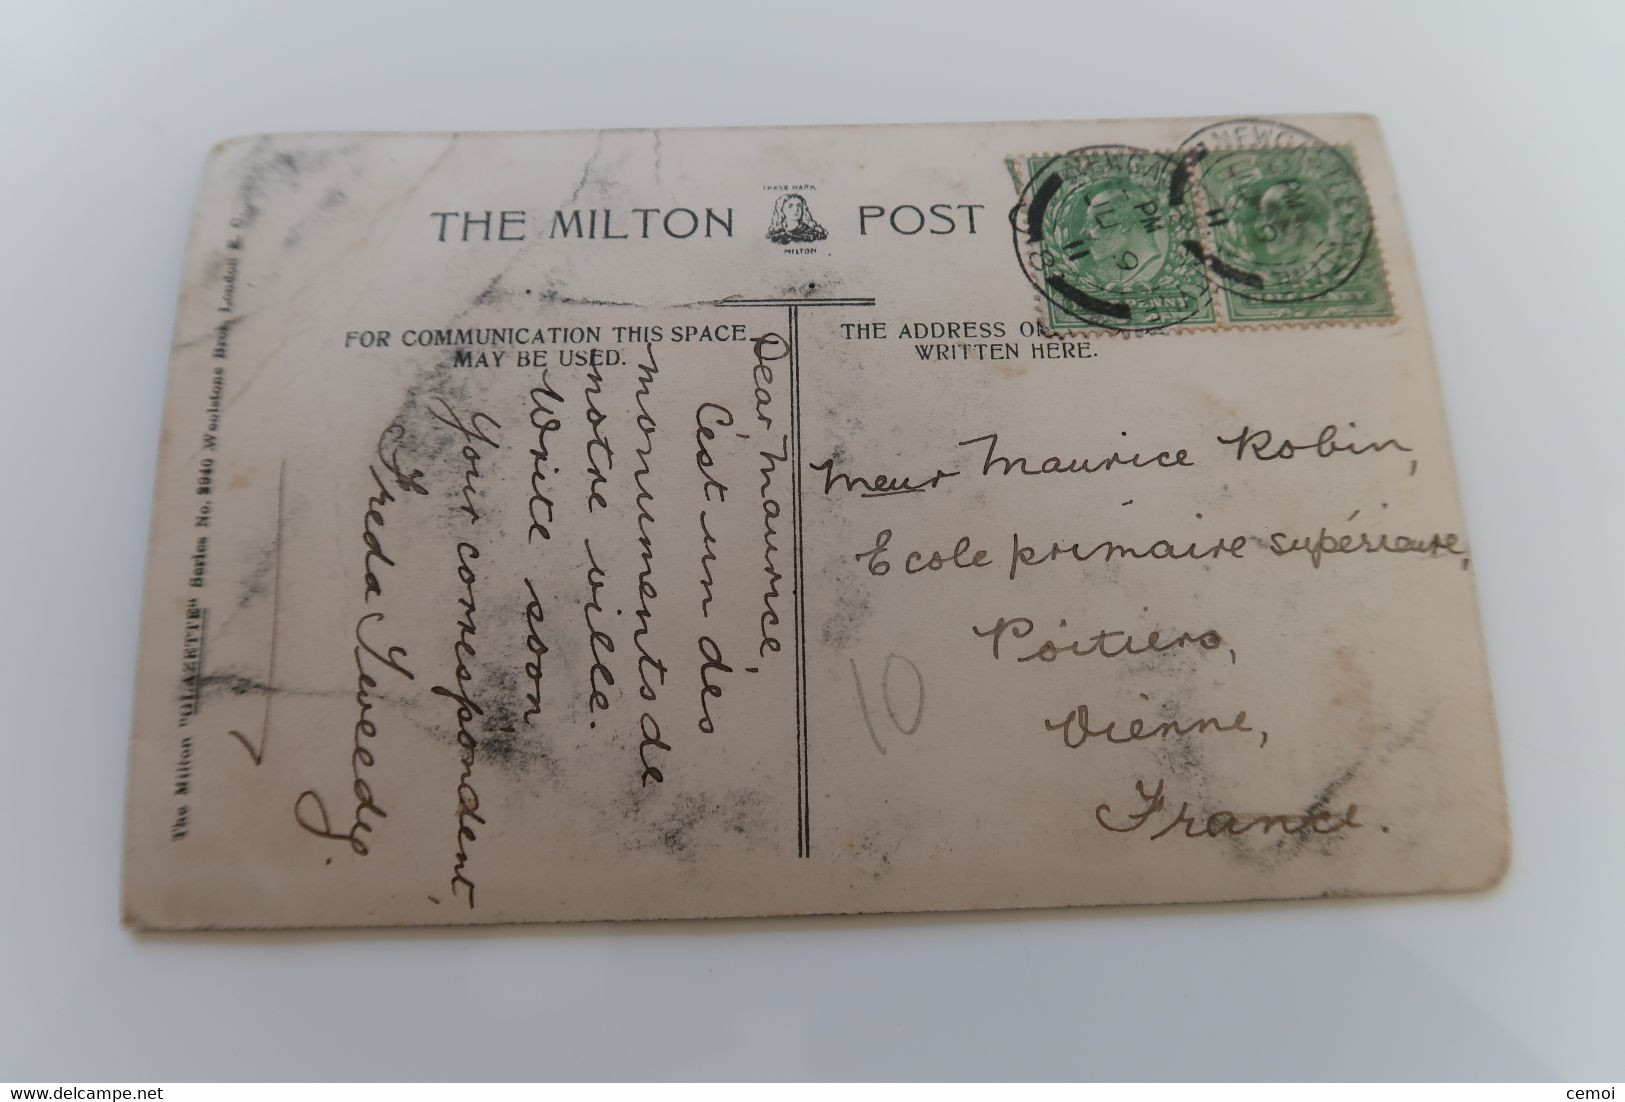 THE MILTON POST C
TRADE MARK
MILTON
FOR COMMUNICATION THIS SPACE
MAY BE USED.
THE ADDRESS
WRITTEN HERE.
NEWCA
PM
JL 9
11
Dear Maurice,
C'est un des
monuments de
notre ville.
Write soon
Your correspondent,
Freda Tweedy.
Meur Maurice Robin,
Ecole primaire supérieure,
Poitiers,
Vienne,
France.
10
The Milton "GLAZETTE" Series No. Woolstone Bros, London E. C.
cemoi